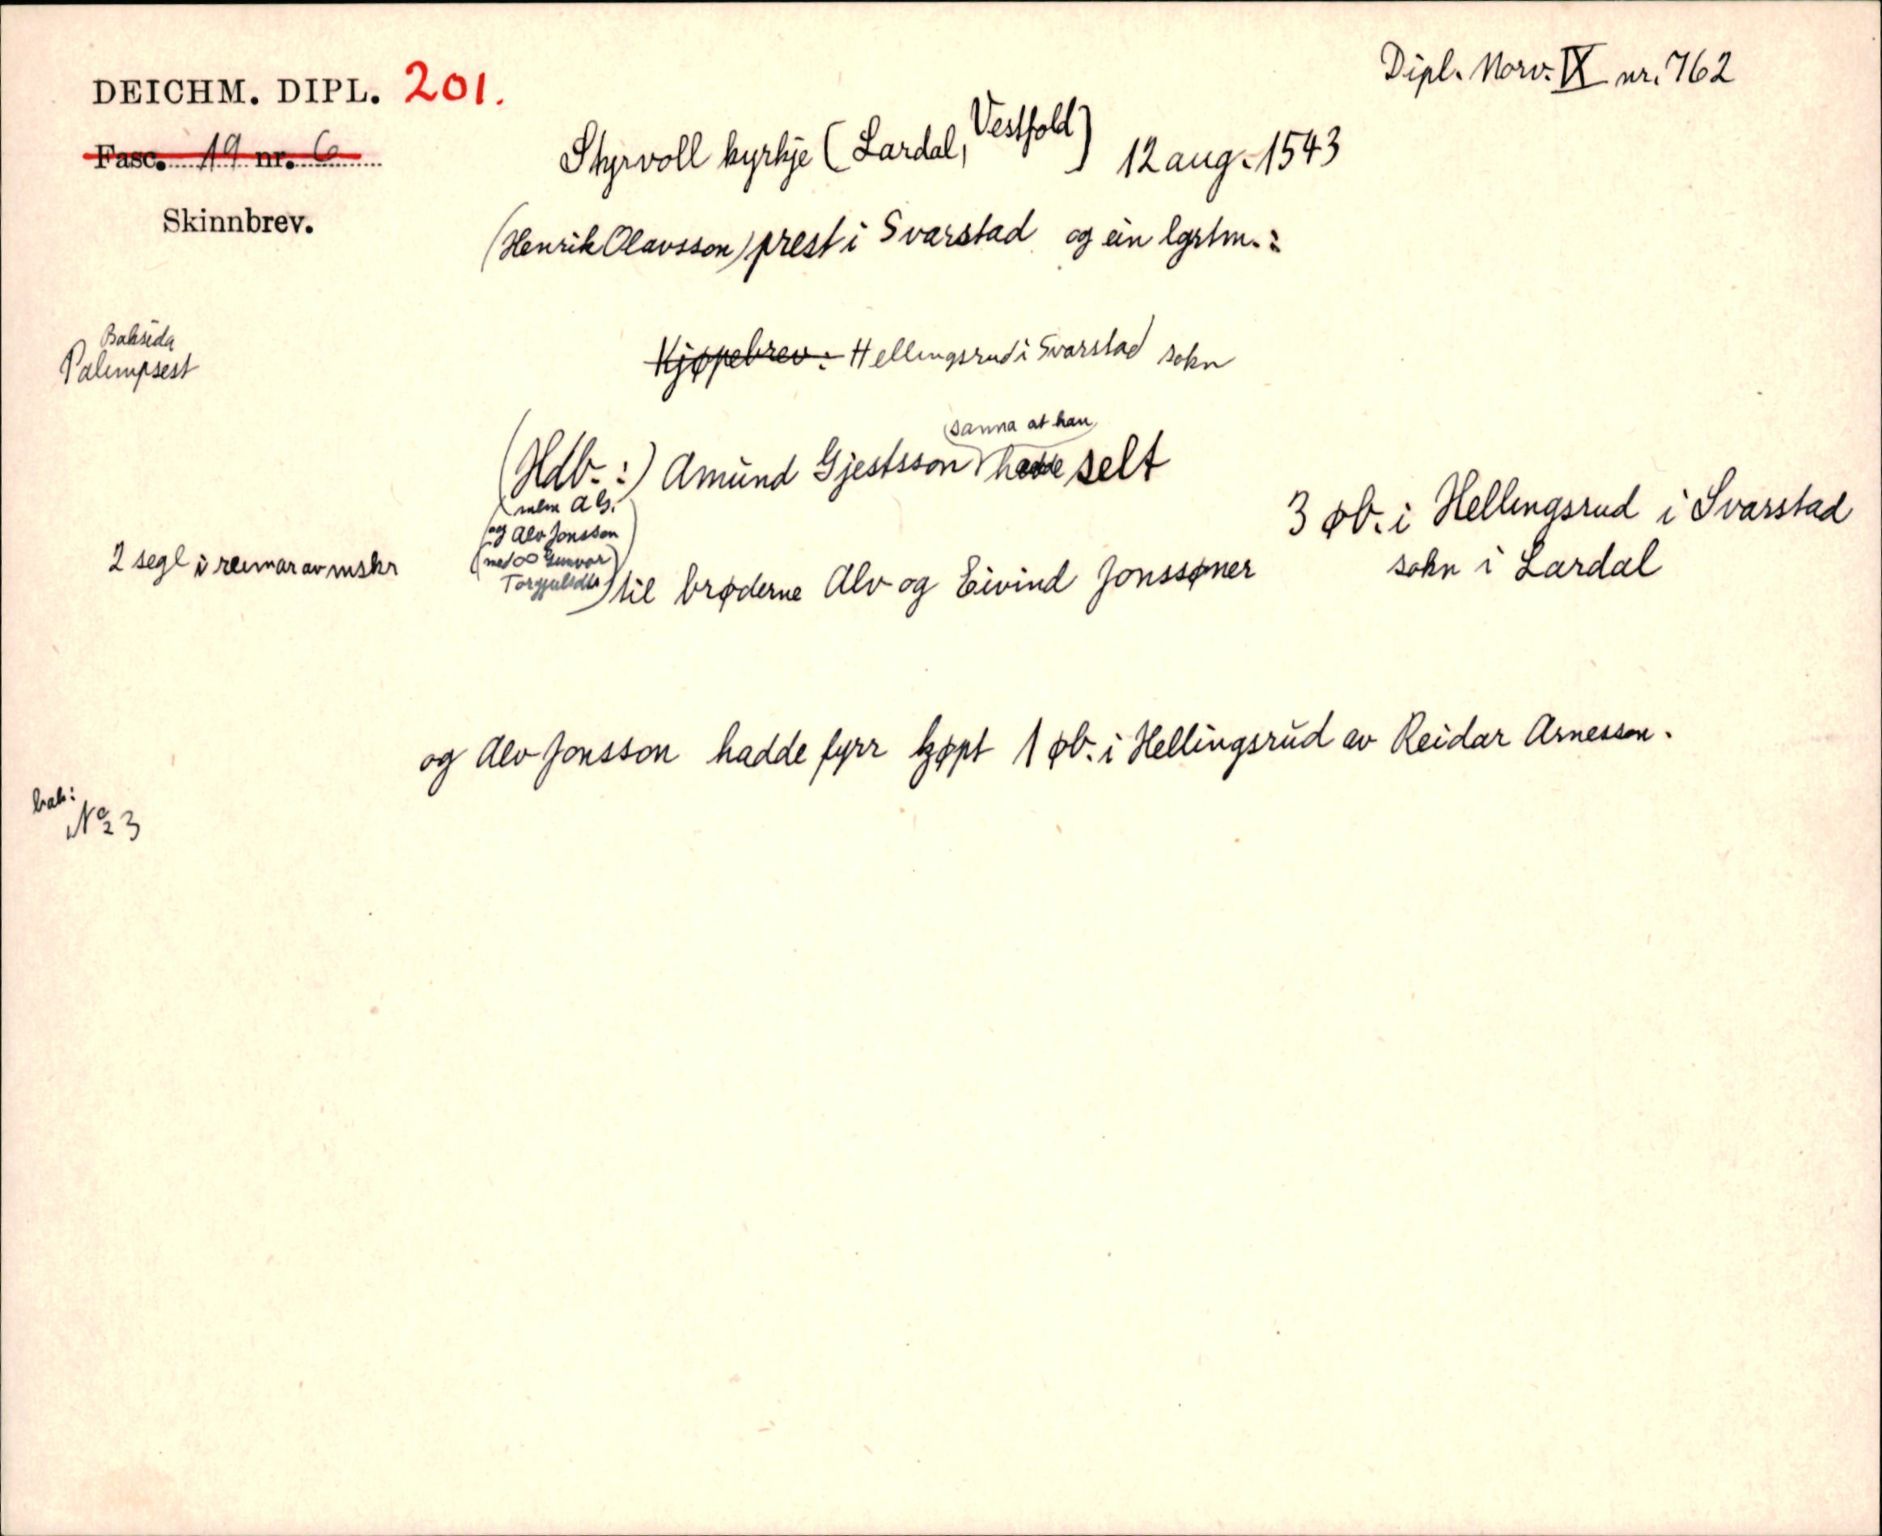 DEICHM. DIPL. 201.
Dipl. Norv. IX nr. 762
Fasc. 19 nr. 6
Styrvoll kyrkje (Lardal, Vestfold) 12 aug. 1543
Skinnbrev.
(Henrik Olavsson) prest i Svarstad og ein lgrtm.:
Baksida
Palimpsest
Kjøpebrev: Hellingsrud i Svarstad sokn
sanna at han
(Hdb.:) Amund Gjestsson hadde selt
3 øb. i Hellingsrud i Svarstad
sokn i Lardal
(mlm A G.
og Alv Jonsson
(med ∞ Gunvor
Torgjulsdtr)
2 segl i reimar av mskr
til brøderne Alv og Eivind Jonssøner
og Alv Jonsson hadde fyrr kjøpt 1 øb. i Hellingsrud av Reidar Arnesson.
bak:
No 3